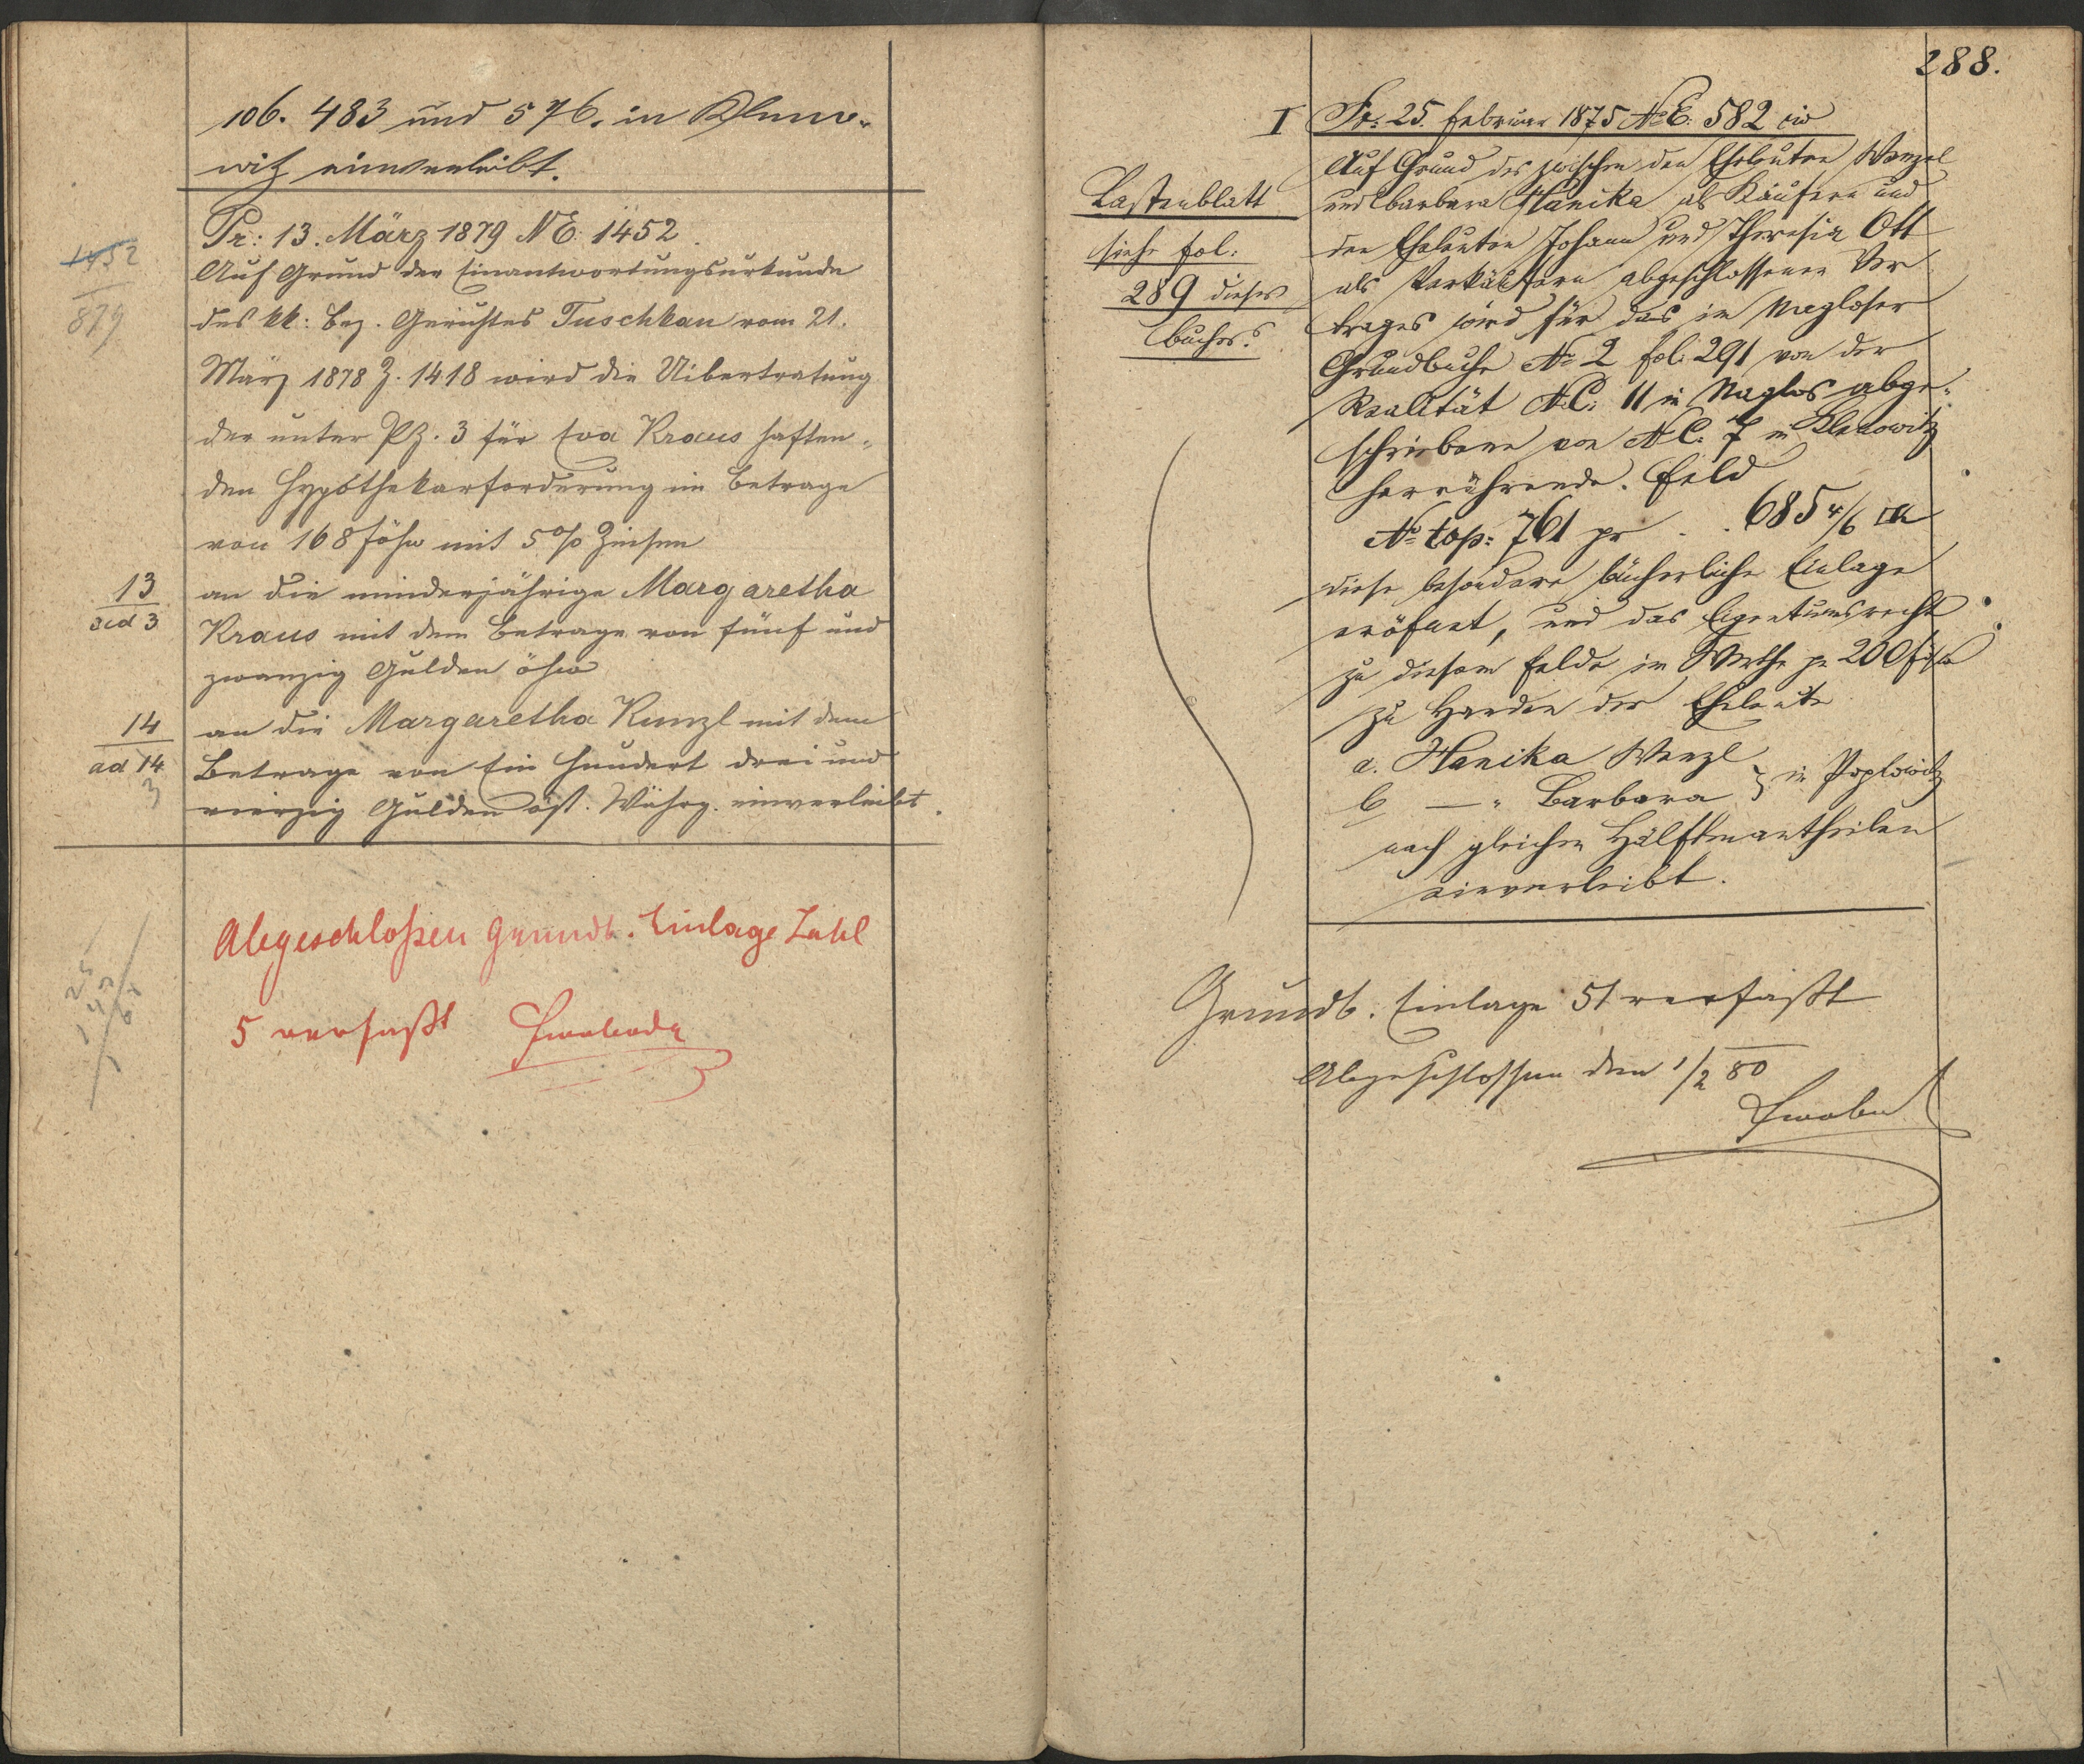 106. 483 und 576. in Kleno-
witz einverleibt.
1452
879
Pr: 13. März 1879 NE: 1452
Auf Grund der Einantwortungsurkunde
des kk: Bez. Gerichtes Tuschkau vom 21.
März 1878 Z. 1418 wird die Uibertratung
der unter PZ. 3 für Eva Kraus haften-
den Hypothekarforderung im Betrage
von 168 f öhw mit 5% Zinsen
13
ad 3
an die minderjährige Margaretha
Kraus mit dem Betrage von fünf und
zwanzig Gulden öhw
14
ad 14
3
an die Margaretha Kunzl mit dem
Betrage von Ein Hundert drei und
vierzig Gulden öst. Währg. einverleibt.
Abgeschloßen Grundb. Einlage Zahl
5 verfaßt Swoboda
288.
I
Pr: 25. Februar 1875 NE: 582 civ
Lastenblatt
siehe fol:
289 dieses
Buches.
Auf Grund des zwischen den Eheleuten Wenzel
und Barbara Hanika als Käufern und
den Eheleuten Johann und Theresia Ott
als Verkäufern abgeschlossenen Ver
trages wird für das im Magloser
Grundbuche No 2 fol: 291 von der
Realität NC: 11 in Naglos abge-
schriebene von NC: 7 in Klenowitz
herrührende Feld
No top: 761 pr . . 685 4/6 □K
diese besondere bücherliche Einlage
eröfnet, und das Eigentumsrecht
zu diesem Felde im Werthe pr 200 f öW
zu Handen der Eheleute
a. Hanika Wenzl
b — " Barbara } in Poplowitz
nach gleichen Hälftenantheilen
einverleibt.
Grundb. Einlage 51 verfaßt
Abgeschlossen den 1/2 80
Swobod